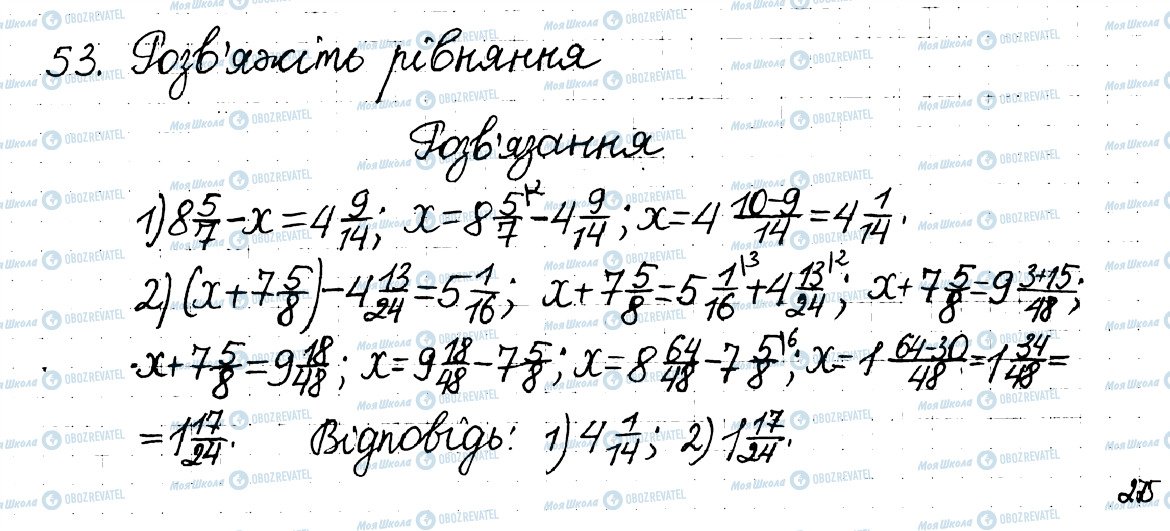 53. Розв'яжіть рівняння
Розв'язання
1) 8 5/7 - x = 4 9/14; x = 8 5/7 |2 - 4 9/14; x = 4 (10-9)/14 = 4 1/14.
2) (x + 7 5/8) - 4 13/24 = 5 1/16; x + 7 5/8 = 5 1/16 |3 + 4 13/24 |2; x + 7 5/8 = 9 (3+15)/48;
x + 7 5/8 = 9 18/48; x = 9 18/48 - 7 5/8; x = 8 64/48 - 7 5/8 |6; x = 1 (64-30)/48 = 1 34/48 =
= 1 17/24. Відповідь: 1) 4 1/14; 2) 1 17/24.
275
Моя Школа OBOZREVATEL